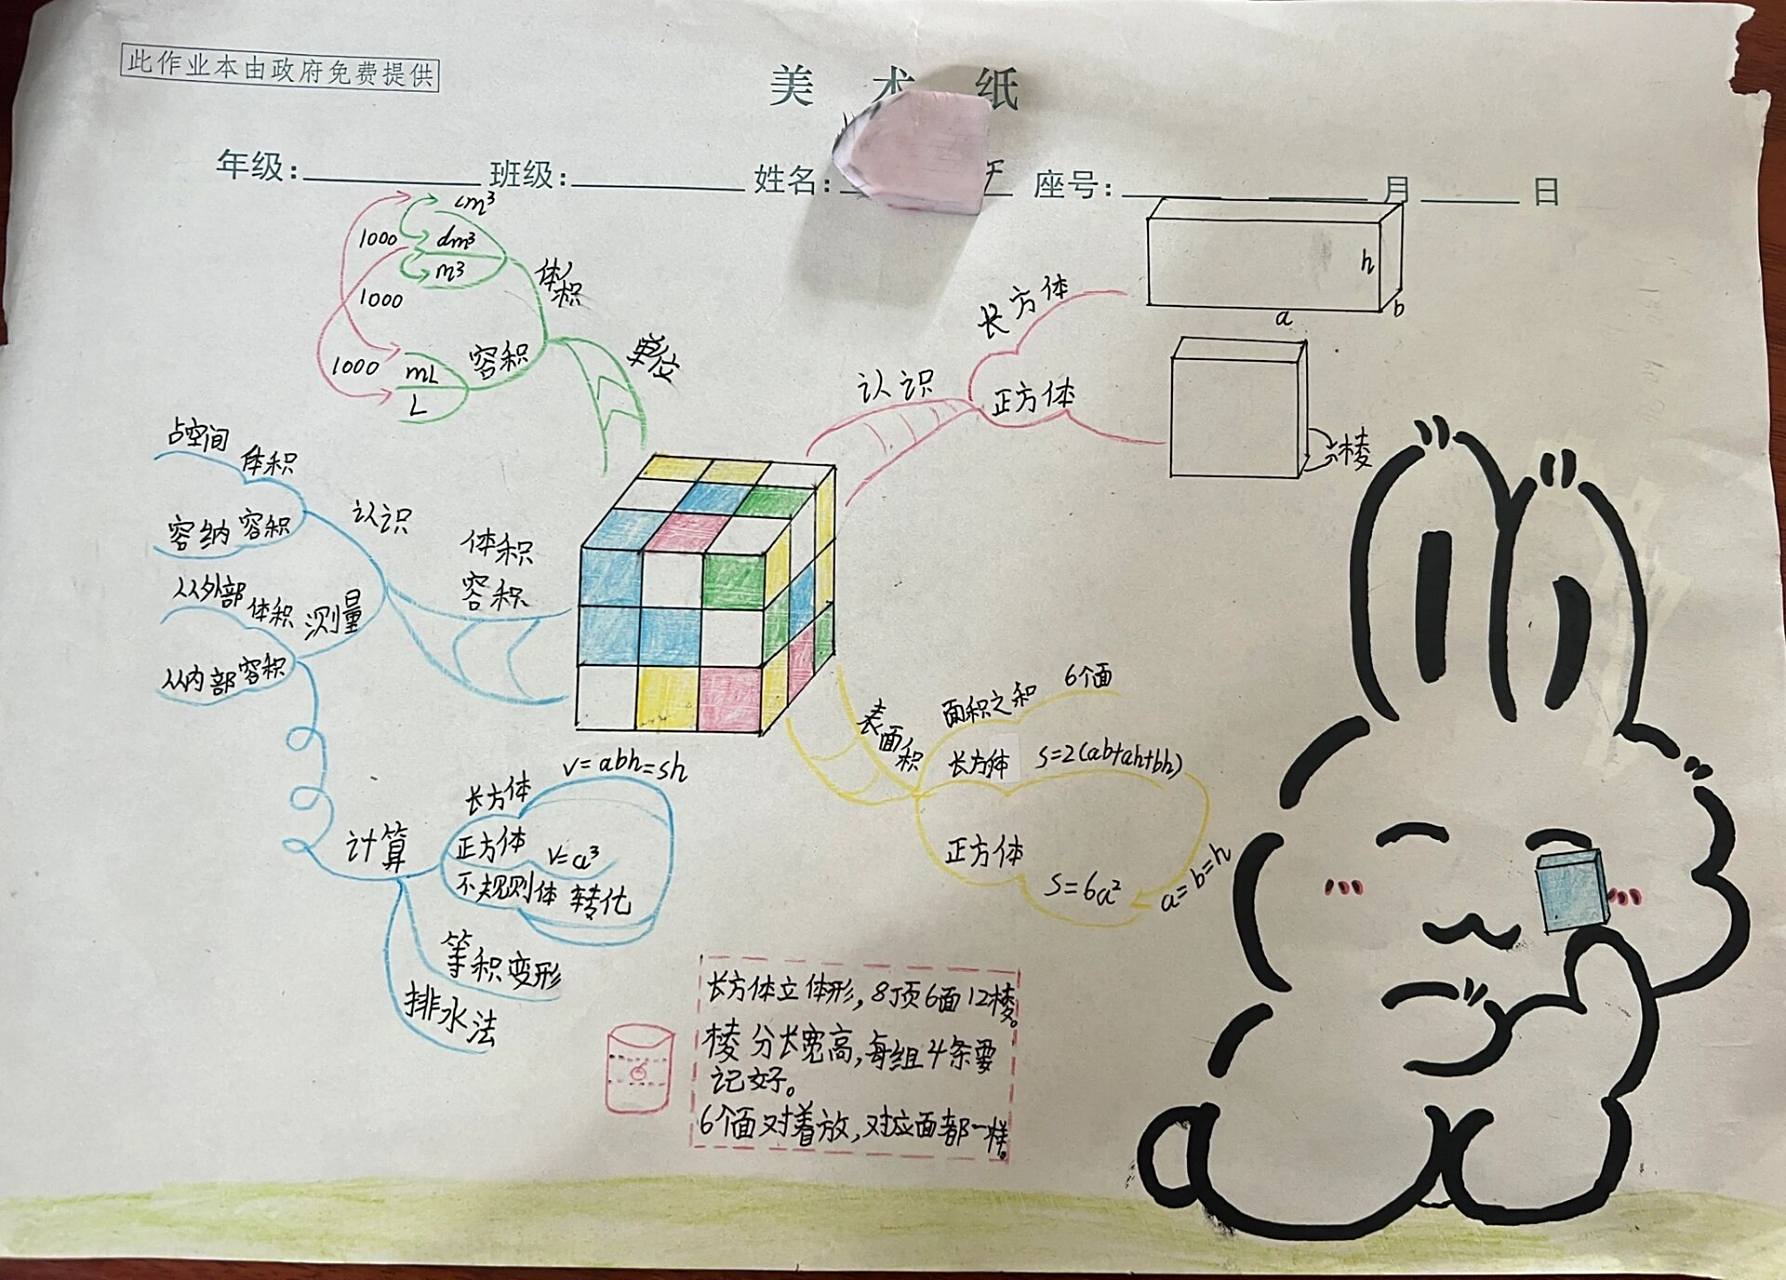 此作业本由政府免费提供
美 术 纸
年级: 班级: 姓名: 座号: 月 日
cm³
1000 dm³
m³
1000
体积
1000 mL
L
容积
单位
认识
长方体
正方体
h
b
a
棱
占空间 体积
容纳 容积
认识
从外部 体积
从内部 容积
测量
体积
容积
计算
长方体 V=abh=sh
正方体 V=a³
不规则体 转化
等积变形
排水法
表面积
面积之和 6个面
长方体 S=2(ab+ah+bh)
正方体 S=6a²
a=b=h
长方体立体形,8顶6面12棱。
棱分长宽高,每组4条要
记好。
6个面对着放,对应面都一样。